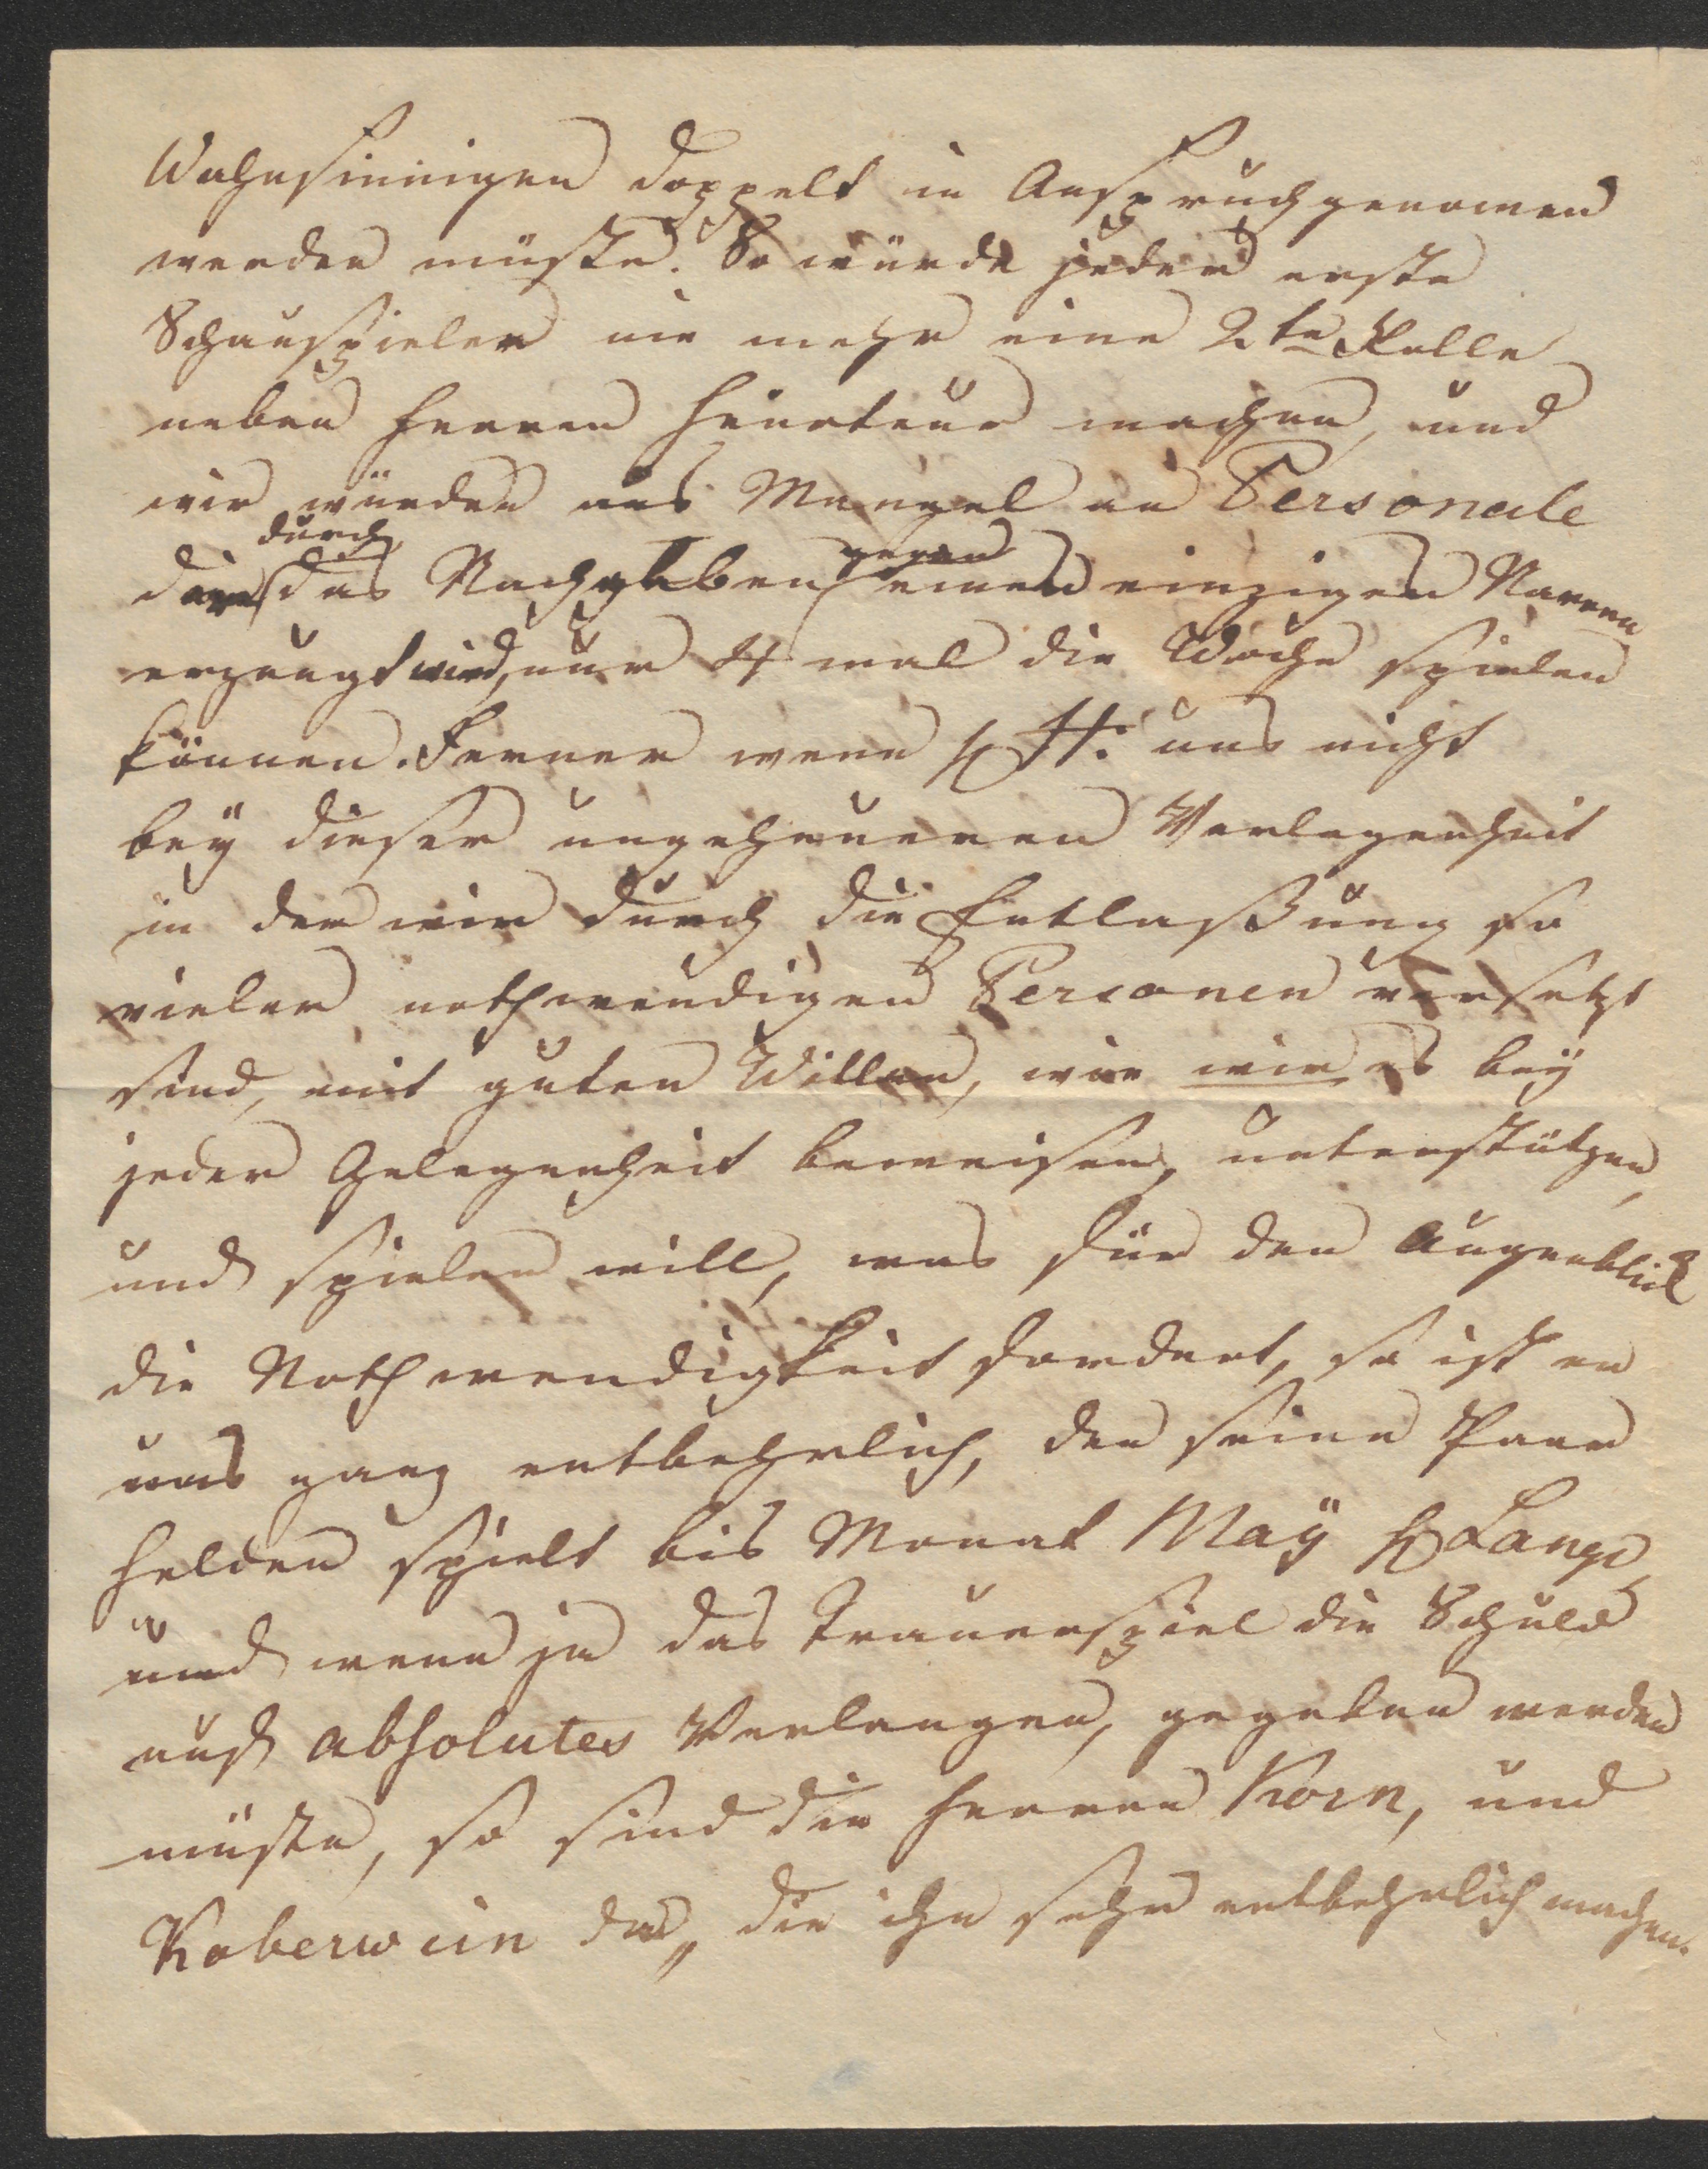 Wahnsinnigen doppelt in Anspruch genomen
werden müßte. So würde jeder erste
Schauspieler nie mehr eine 2te Rolle
neben Herren Heurteur machen, und
wir würden aus Mangel an Personale
durch gegen
das Nachgeben einen einzigen Narren
erzeugt wird, nur 4 mal die Woche spielen
können. Ferner wenn H H: uns nicht
bey dieser ungeheueren Verlegenheit
in der wir durch die Entlaßung so
vieler nothwendigen Personen versetzt
sind, mit guten Willen, wie wir es bey
jeder Gelegenheit beweisen, unterstützen,
und spielen will, was für den Augenblick
die Nothwendigkeit fordert, so ist er
uns ganz entbehrlich, den seine Paar
Helden spielt bis Monat May H Lange,
und wenn ja das Trauerspiel die Schuld
auf absolutes Verlangen, gegeben werden
müßte, so sind die Herren Korn, und
Koberwein da, die ihn sehr entbehrlich machen.